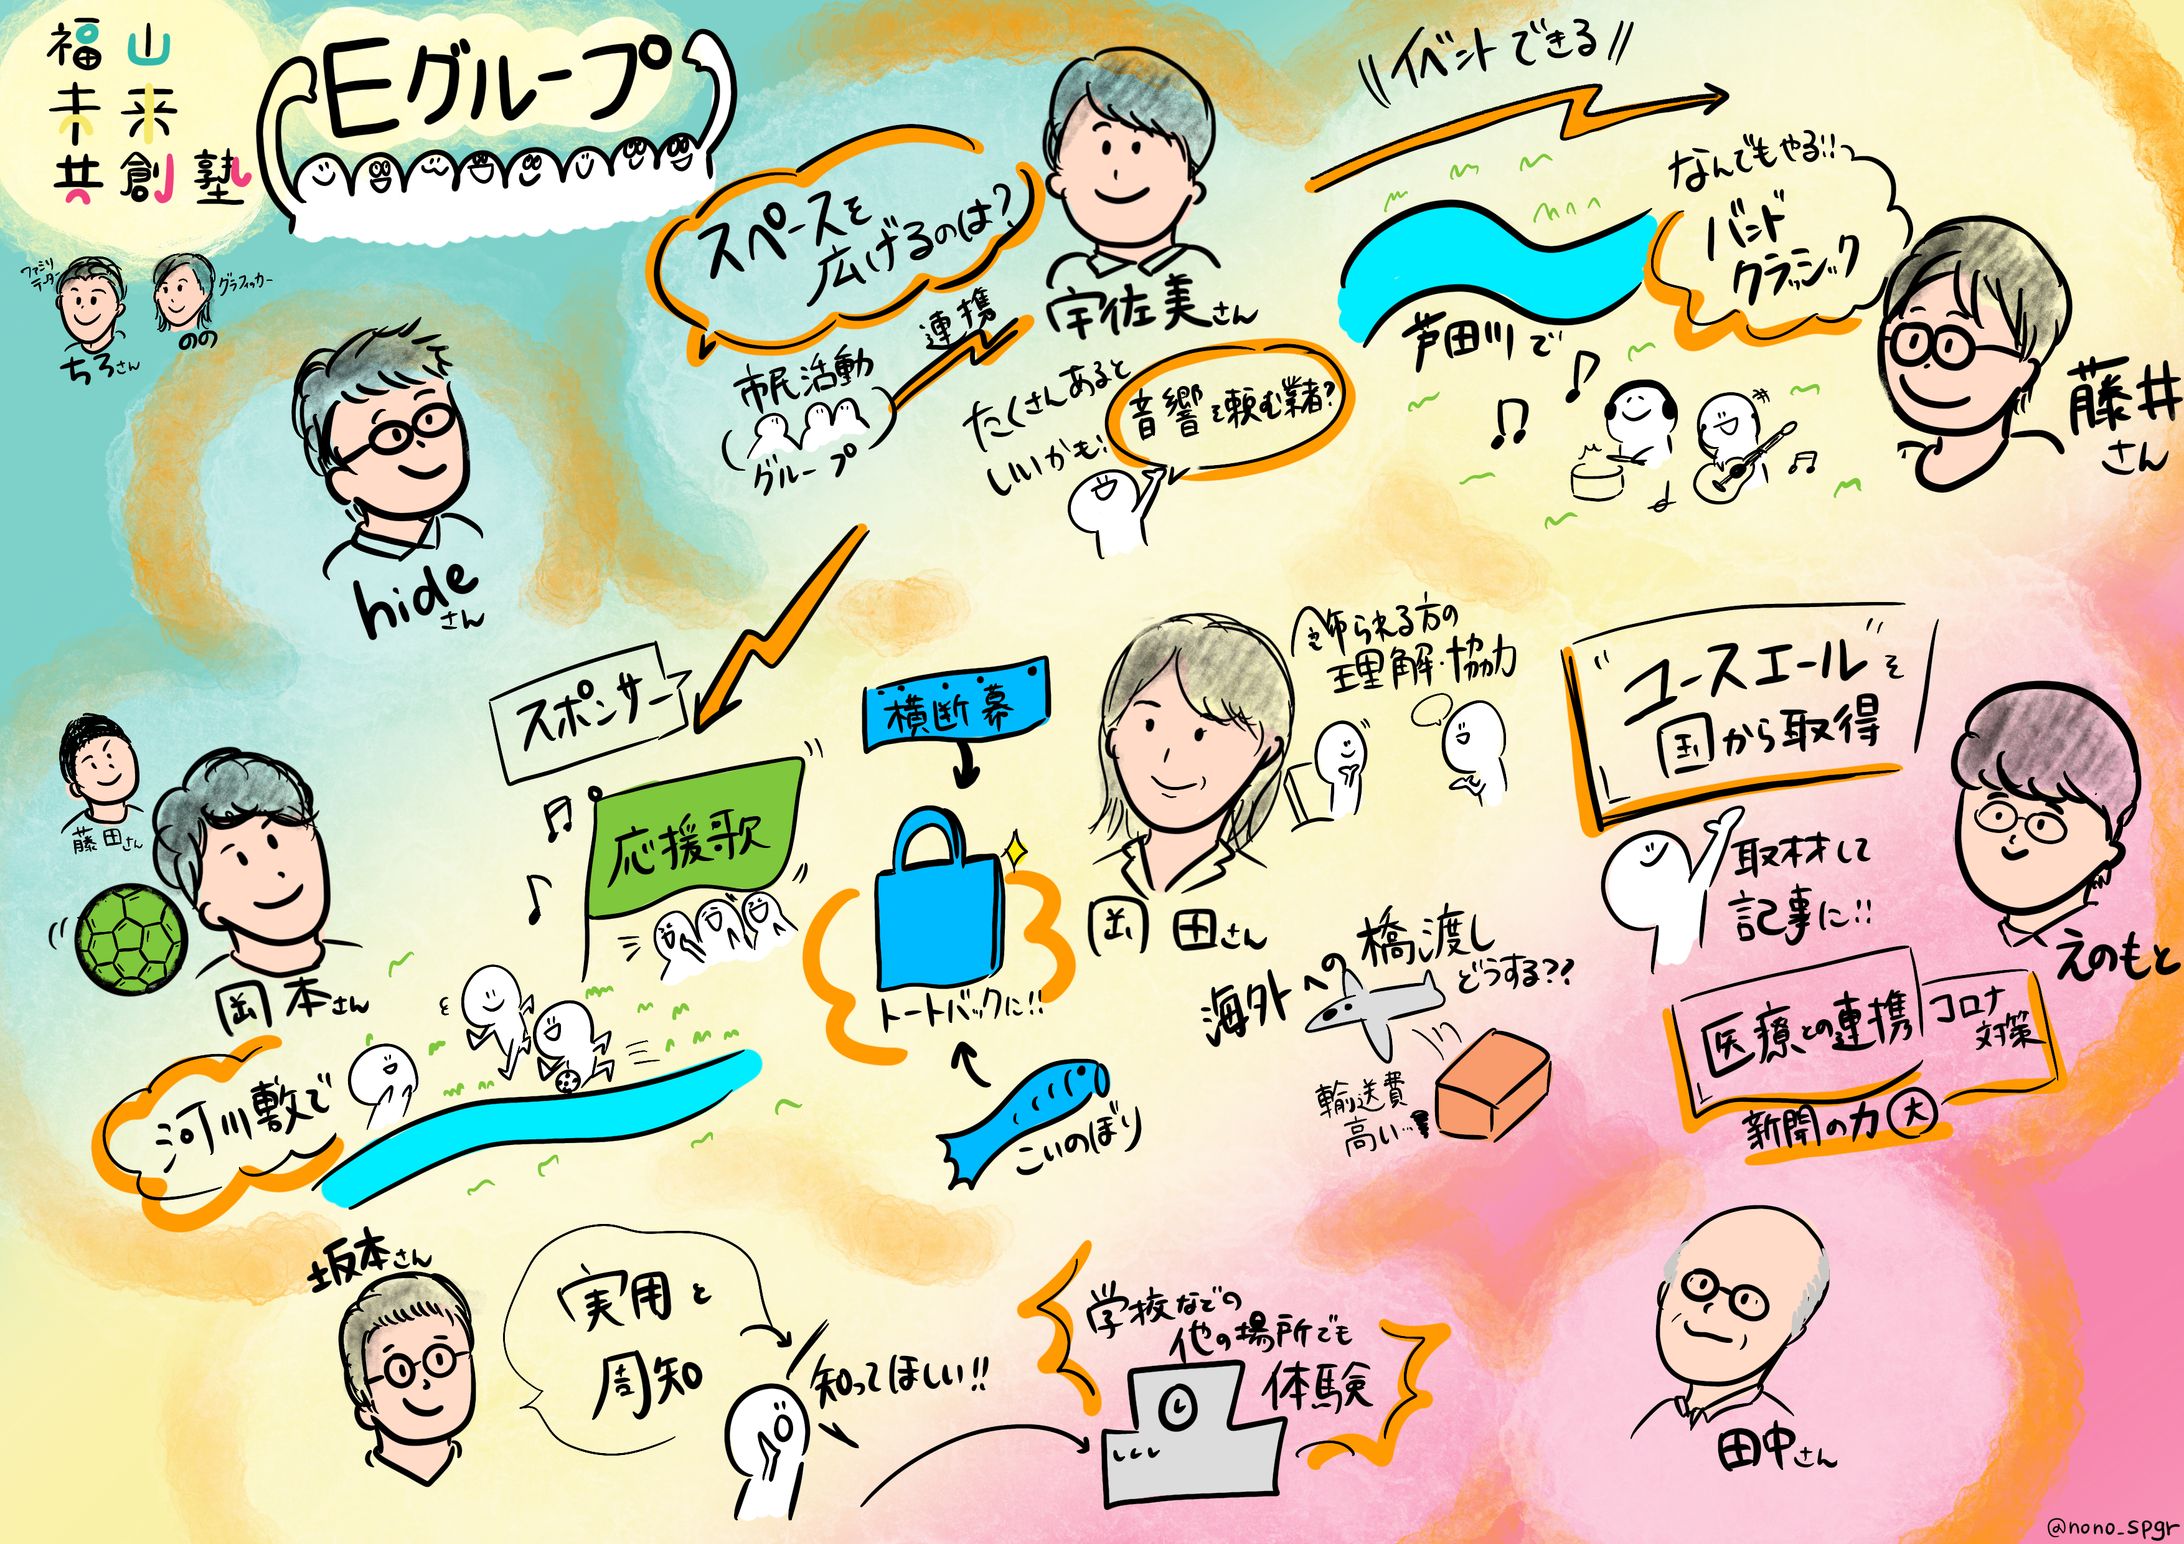 福山
未来
共創塾
Eグループ
ファシリ
テーター
ちろさん
グラフィッカー
のの
hideさん
スペースを
広げるのは?
宇佐美さん
連携
市民活動
グループ
たくさんあると
いいかも!
音響を頼む業者?
イベントできる
なんでもやる!!
バンド
クラシック
芦田川で
藤井
さん
スポンサー
応援歌
横断幕
トートバックに!!
こいのぼり
岡田さん
飾られる方の
理解・協力
海外への橋渡し
どうする??
輸送費
高い…
"ユースエール"を
国から取得
取材して
記事に!!
えのもと
医療との連携
コロナ
対策
新聞の力大
藤田さん
岡本さん
河川敷で
坂本さん
実用と
周知
知ってほしい!!
学校などの
他の場所でも
体験
田中さん
@nono_spgr